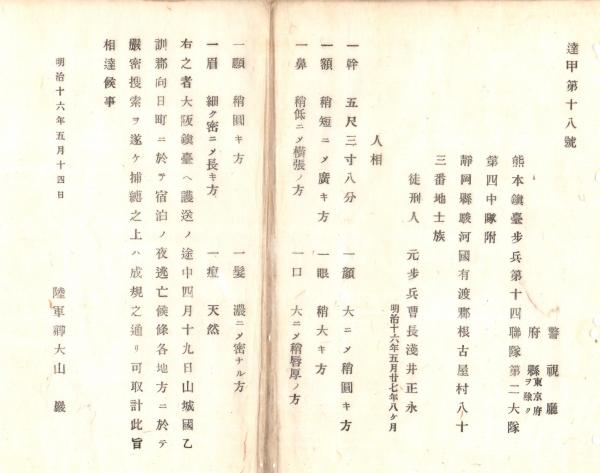 達甲第十八號
警視廳
府縣東京府ヲ除ク
熊本鎭臺步兵第十四聯隊第二大隊
第四中隊附
靜岡縣駿河國有渡郡根古屋村八十
三番地士族
徒刑人 元步兵曹長淺井正永
明治十六年五月廿七年八ケ月
人相
一幹 五尺三寸八分 一顏 大ニメ稍圓キ方
一額 稍短ニメ廣キ方 一眼 稍大キ方
一鼻 稍低ニメ橫張ノ方 一口 大ニメ稍唇厚ノ方
一頤 稍圓キ方 一髮 濃ニメ密ナル方
一眉 細ク密ニメ長キ方 一痘 天然
右之者大阪鎭臺ヘ護送ノ途中四月十九日山城國乙
訓郡向日町ニ於テ宿泊ノ夜逃亡候條各地方ニ於テ
嚴密搜索ヲ遂ケ捕縛之上ハ成規之通リ可取計此旨
相達候事
明治十六年五月十四日
陸軍卿大山 巖